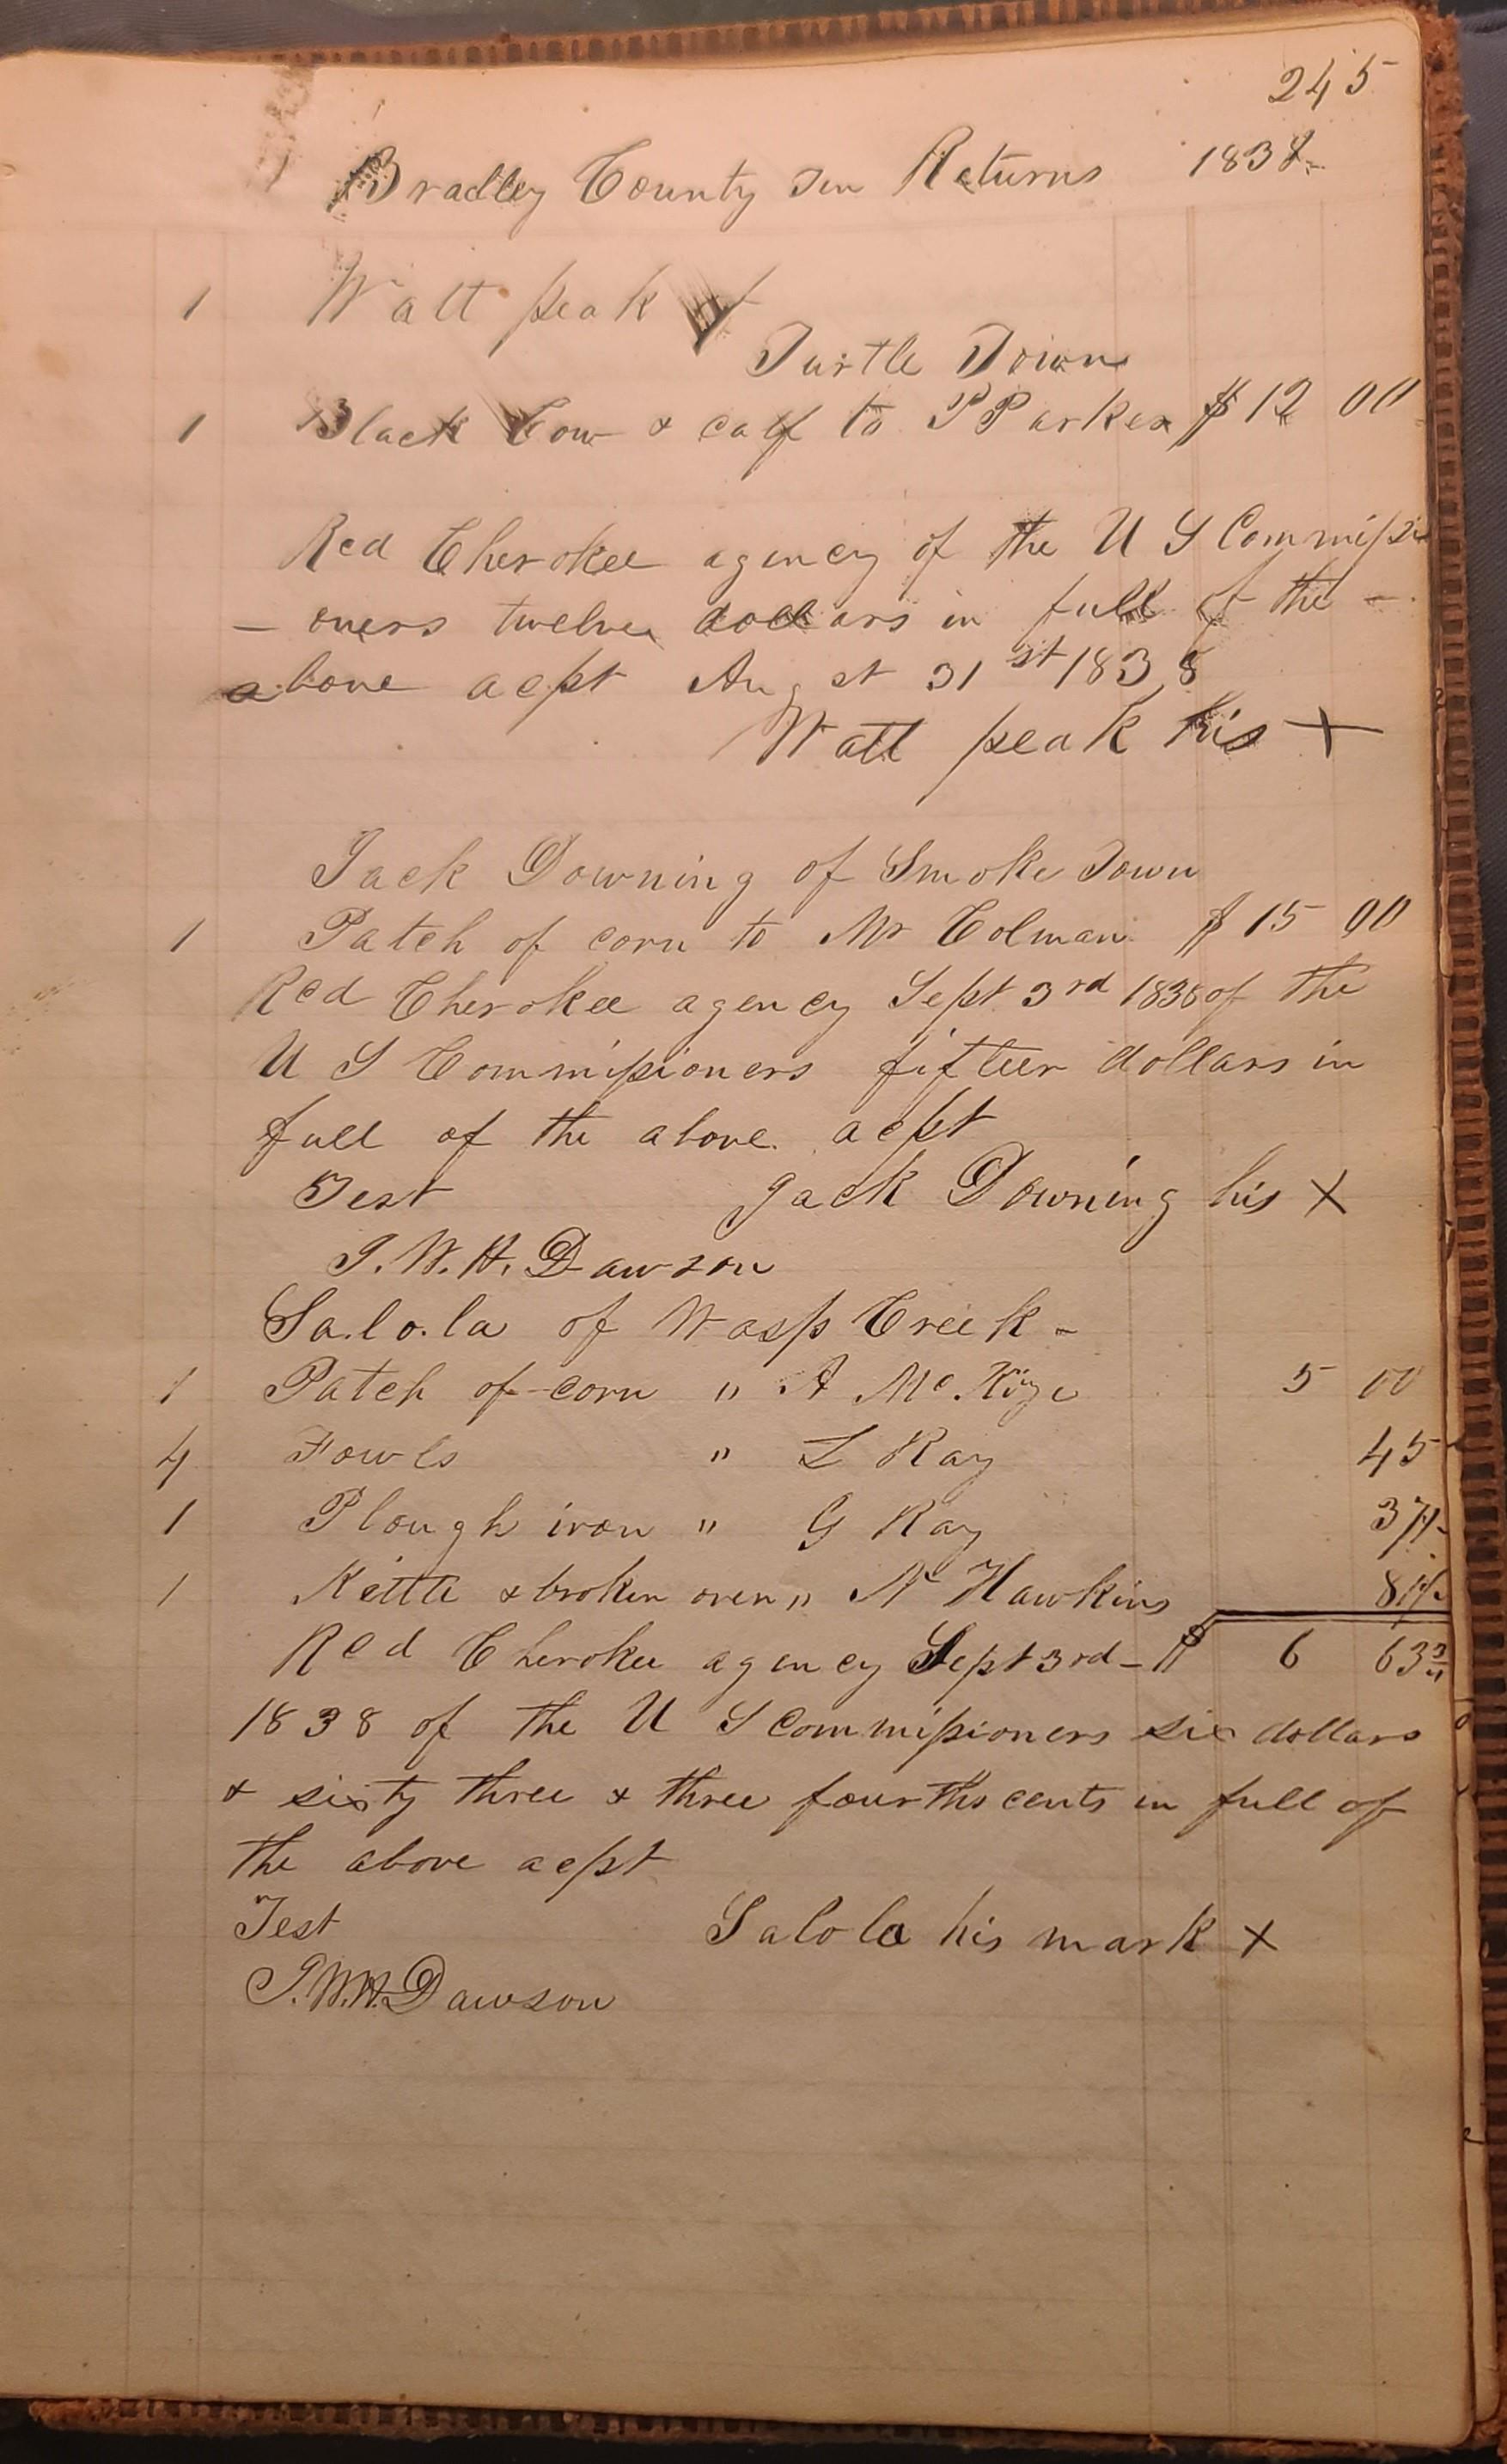 245
Bradley County Ten Returns 1838
1 Watt peak of
Turtle Town
1 Black Cow & calf to P Parker $ 12 00
Recd Cherokee agency of the U S Commissi
- oners twelve dollars in full of the -
above acpt Augst 31st 1838
Watt peak his +
Jack Downing of Smoke Town
1 Patch of corn to Mr Colman $ 15 00
Recd Cherokee agency Sept 3rd 1838 of the
U S Commissioners fifteen dollars in
full of the above acpt
Test Jack Downing his X
J. W. H. Dawson
Sa.lo.la of Wasp Creek -
1 Patch of corn " A 5 00
4 Fowls " L Ray 45
1 Plough iron " G Ray
1 Kettle & broken oven " N Hawkins
Recd Cherokee agency Sept 3rd - $ 6 63 3/4
1838 of the U S Commissioners six dollars
& sixty three & three fourths cents in full of
the above acpt
Test Salola his mark X
J. W. H. Dawson